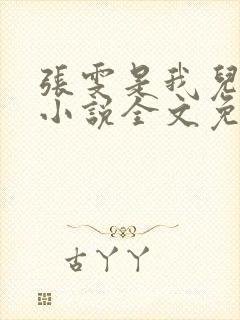 張雯是我兒
小說全文免
古丫丫